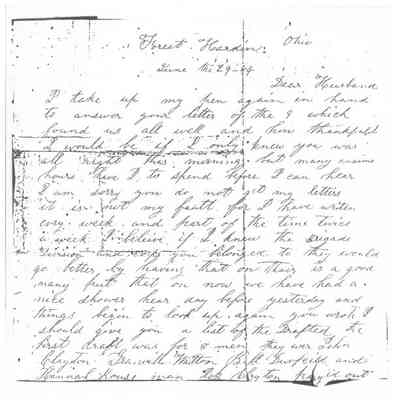 Forest Hardin Ohio
June the 29 - 64
Dear Husband
I take up my pen again in hand
to answer your letter of the 9 which
found us all well and how thankfull
I would be if I only knew you was
all right this morning but many
hours have I to spend before I can hear
I am sorry you do not get my letters
it is not my fault for I have writen
evry week and part of the time twice
a week I beleive if I knew the Brigade
Division and corps you belonged to they would
go better by haveing that on thair is a good
many put that on now we have had a
nice shower hear day before yesterday and
things begin to look up again you wrote I
should give you a list of the Drafted the
first draft was for 8 men they wer John
Claydon and
House man Clayton pay'd out